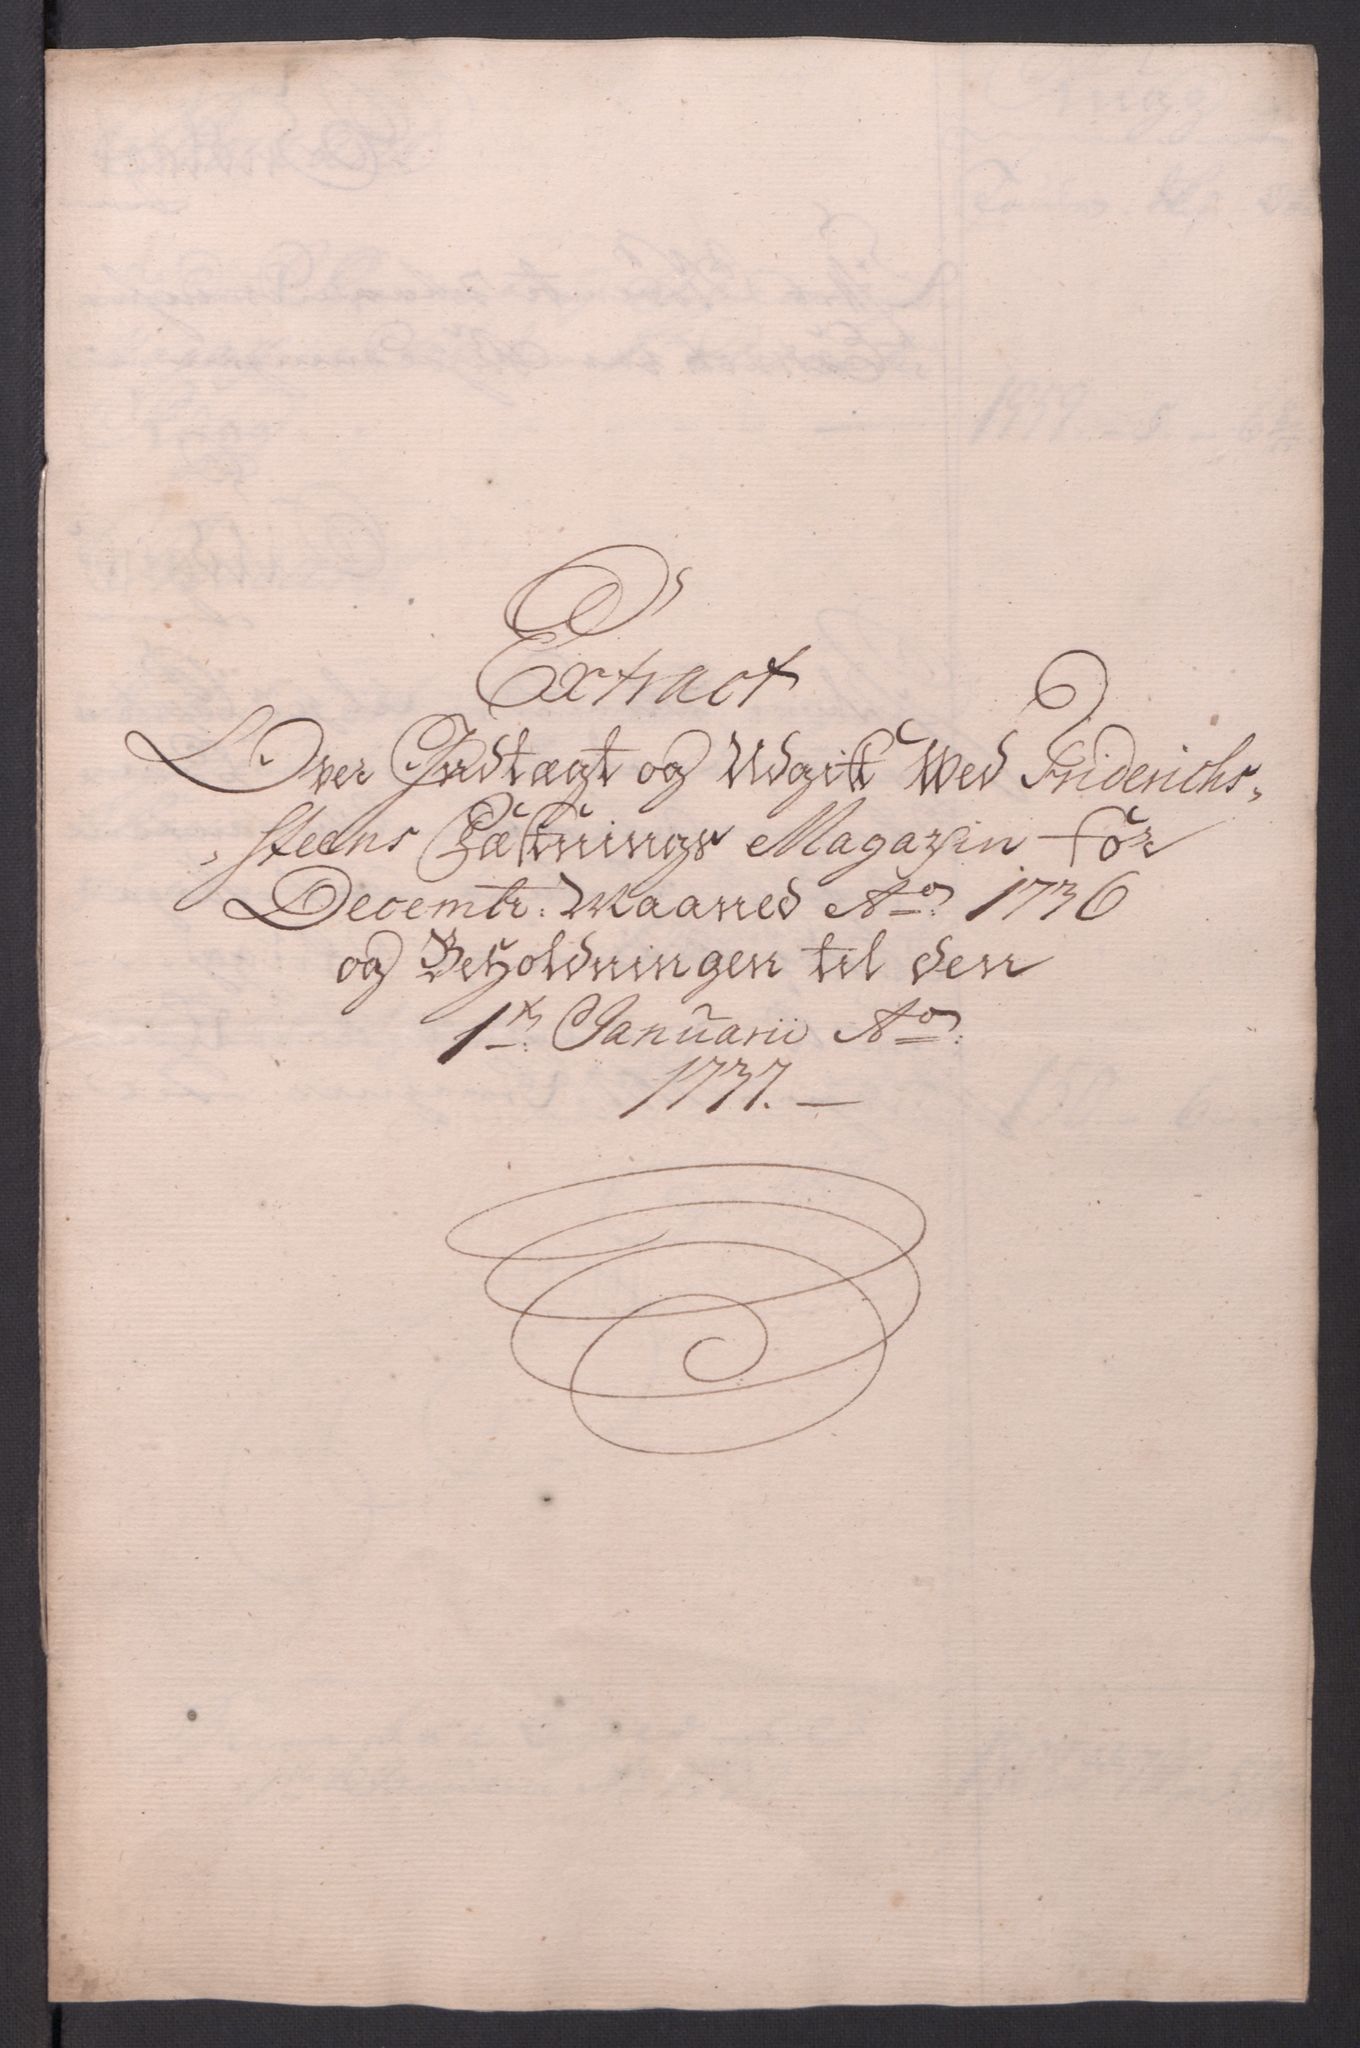 Extract
Over Indtægt og Udgift Wed Friderichs-
steens Fæstnings Magazin for
Decembr: Maaned Ao: 1736
og Beholdningen til den
1te: Januarii Ao:
1737. —